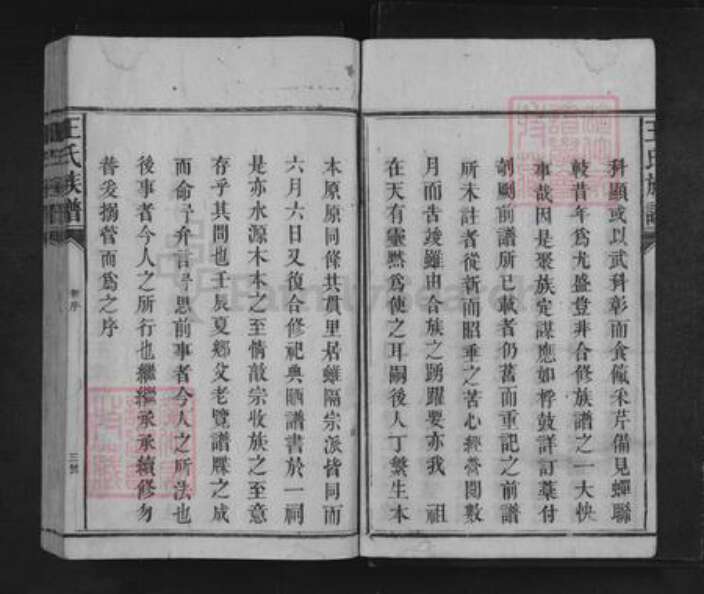 王氏族譜
科顯或以武科彰而食餼采芹備見蟬聯
較昔年爲尤盛登非合修族譜之一大快
事哉因是聚族定謀應如桴鼓詳訂纂付
剞劂前譜所已載者仍舊而重記之前譜
所未註者從新而昭垂之苦心經營閱數
月而告竣雖由合族之踴躍要亦我 祖
在天有靈黙爲使之耳嗣後人丁繁生本
本原原同條共貫里居雖隔宗派皆同而
六月六日又復合修祀典晒譜書於一祠
是亦水源木本之至情敬宗收族之至意
存乎其間也壬辰夏鄉父老覽譜牒之成
而命予弁言予思前事者今人之所法也
後事者今人之所行也繼繼承承續修勿
替爰搦管而爲之序
王氏族譜
新序
三
FamilySearch